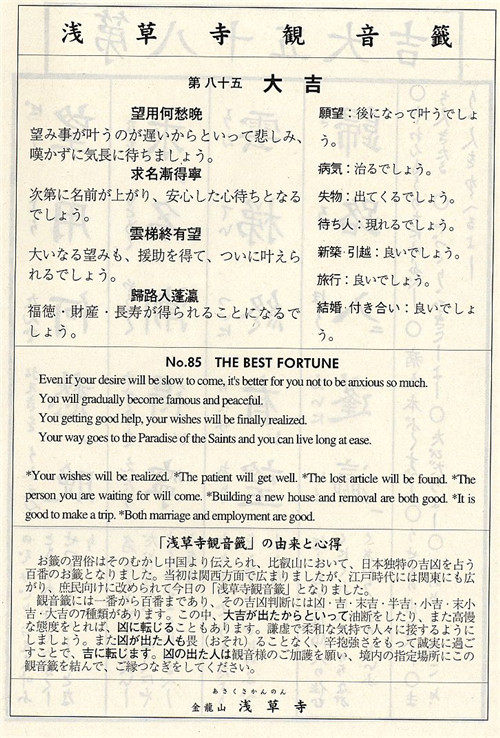 浅草寺観音籤
第八十五 大吉
望用何愁晩
望み事が叶うのが遅いからといって悲しみ、
嘆かずに気長に待ちましょう。
求名漸得寧
次第に名前が上がり、安心した心待ちとなる
でしょう。
雲梯終有望
大いなる望みも、援助を得て、ついに叶えら
れるでしょう。
歸路入蓬瀛
福徳・財産・長寿が得られることになるで
しょう。
願望：後になって叶うでしょ
う。
病気：治るでしょう。
失物：出てくるでしょう。
待ち人：現れるでしょう。
新築・引越：良いでしょう。
旅行：良いでしょう。
結婚・付き合い：良いでしょ
う。
No.85 THE BEST FORTUNE
Even if your desire will be slow to come, it's better for you not to be anxious so much.
You will gradually become famous and peaceful.
You getting good help, your wishes will be finally realized.
Your way goes to the Paradise of the Saints and you can live long at ease.
*Your wishes will be realized. *The patient will get well. *The lost article will be found. *The
person you are waiting for will come. *Building a new house and removal are both good. *It is
good to make a trip. *Both marriage and employment are good.
「浅草寺観音籤」の由来と心得
お籤の習俗はそのむかし中国より伝えられ、比叡山において、日本独特の吉凶を占う
百番のお籤となりました。当初は関西方面で広まりましたが、江戸時代には関東にも広
がり、庶民向けに改められて今日の「浅草寺観音籤」となりました。
観音籤には一番から百番まであり、その吉凶判断には凶・吉・末吉・半吉・小吉・末小
吉・大吉の7種類があります。この中、大吉が出たからといって油断をしたり、また高慢
な態度をとれば、凶に転じることもあります。謙虚で柔和な気持で人々に接するようにし
ましょう。また凶が出た人も畏（おそれ）ることなく、辛抱強さをもって誠実に過ご
すことで、吉に転じます。凶の出た人は観音様のご加護を願い、境内の指定場所にこの
観音籤を結んで、ご縁つなぎをしてください。
あさくさかんのん
金龍山 浅草寺